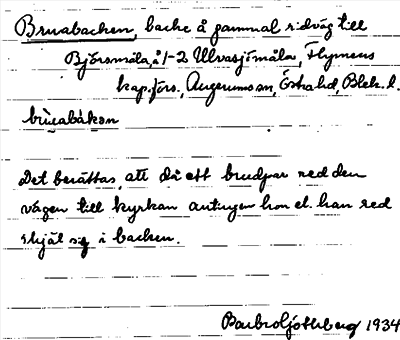 Bruabacken, backe å gammal ridväg till
Björsmåla, å 1-2 Ulvasjömåla, Flymens
kap.förs., Augerums sn, Östra hd, Blek. l.
brùabàkən
Det berättas, att då ett brudpar red den
vägen till kyrkan antingen hon el. han red
ihjäl sig i backen.
1934